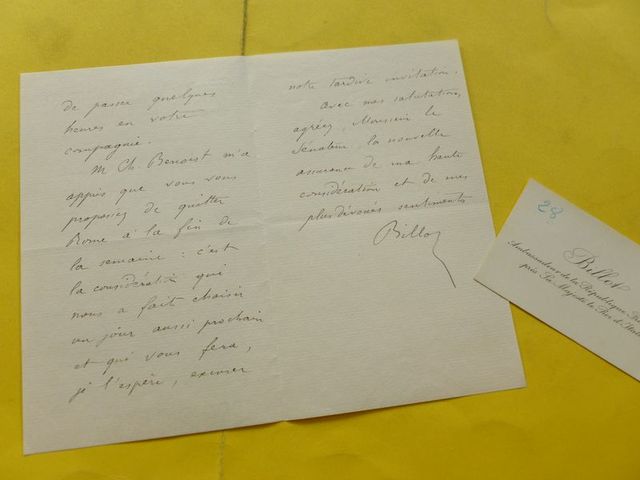 de passer quelques
heures en votre
compagnie.
M Ch. Benoist m'a
appris que vous vous
proposez de quitter
Rome à la fin de
la semaine : c'est
la considération qui
nous a fait choisir
un jour aussi prochain
et qui vous fera,
je l'espère, excuser
notre tardive invitation.
Avec mes salutations,
agréez, Monsieur le
Sénateur, la nouvelle
assurance de ma haute
considération et de mes
plus dévoués sentiments
Billot
28
Billot
Ambassadeur de la République
près Sa Majesté le Roi d'Italie